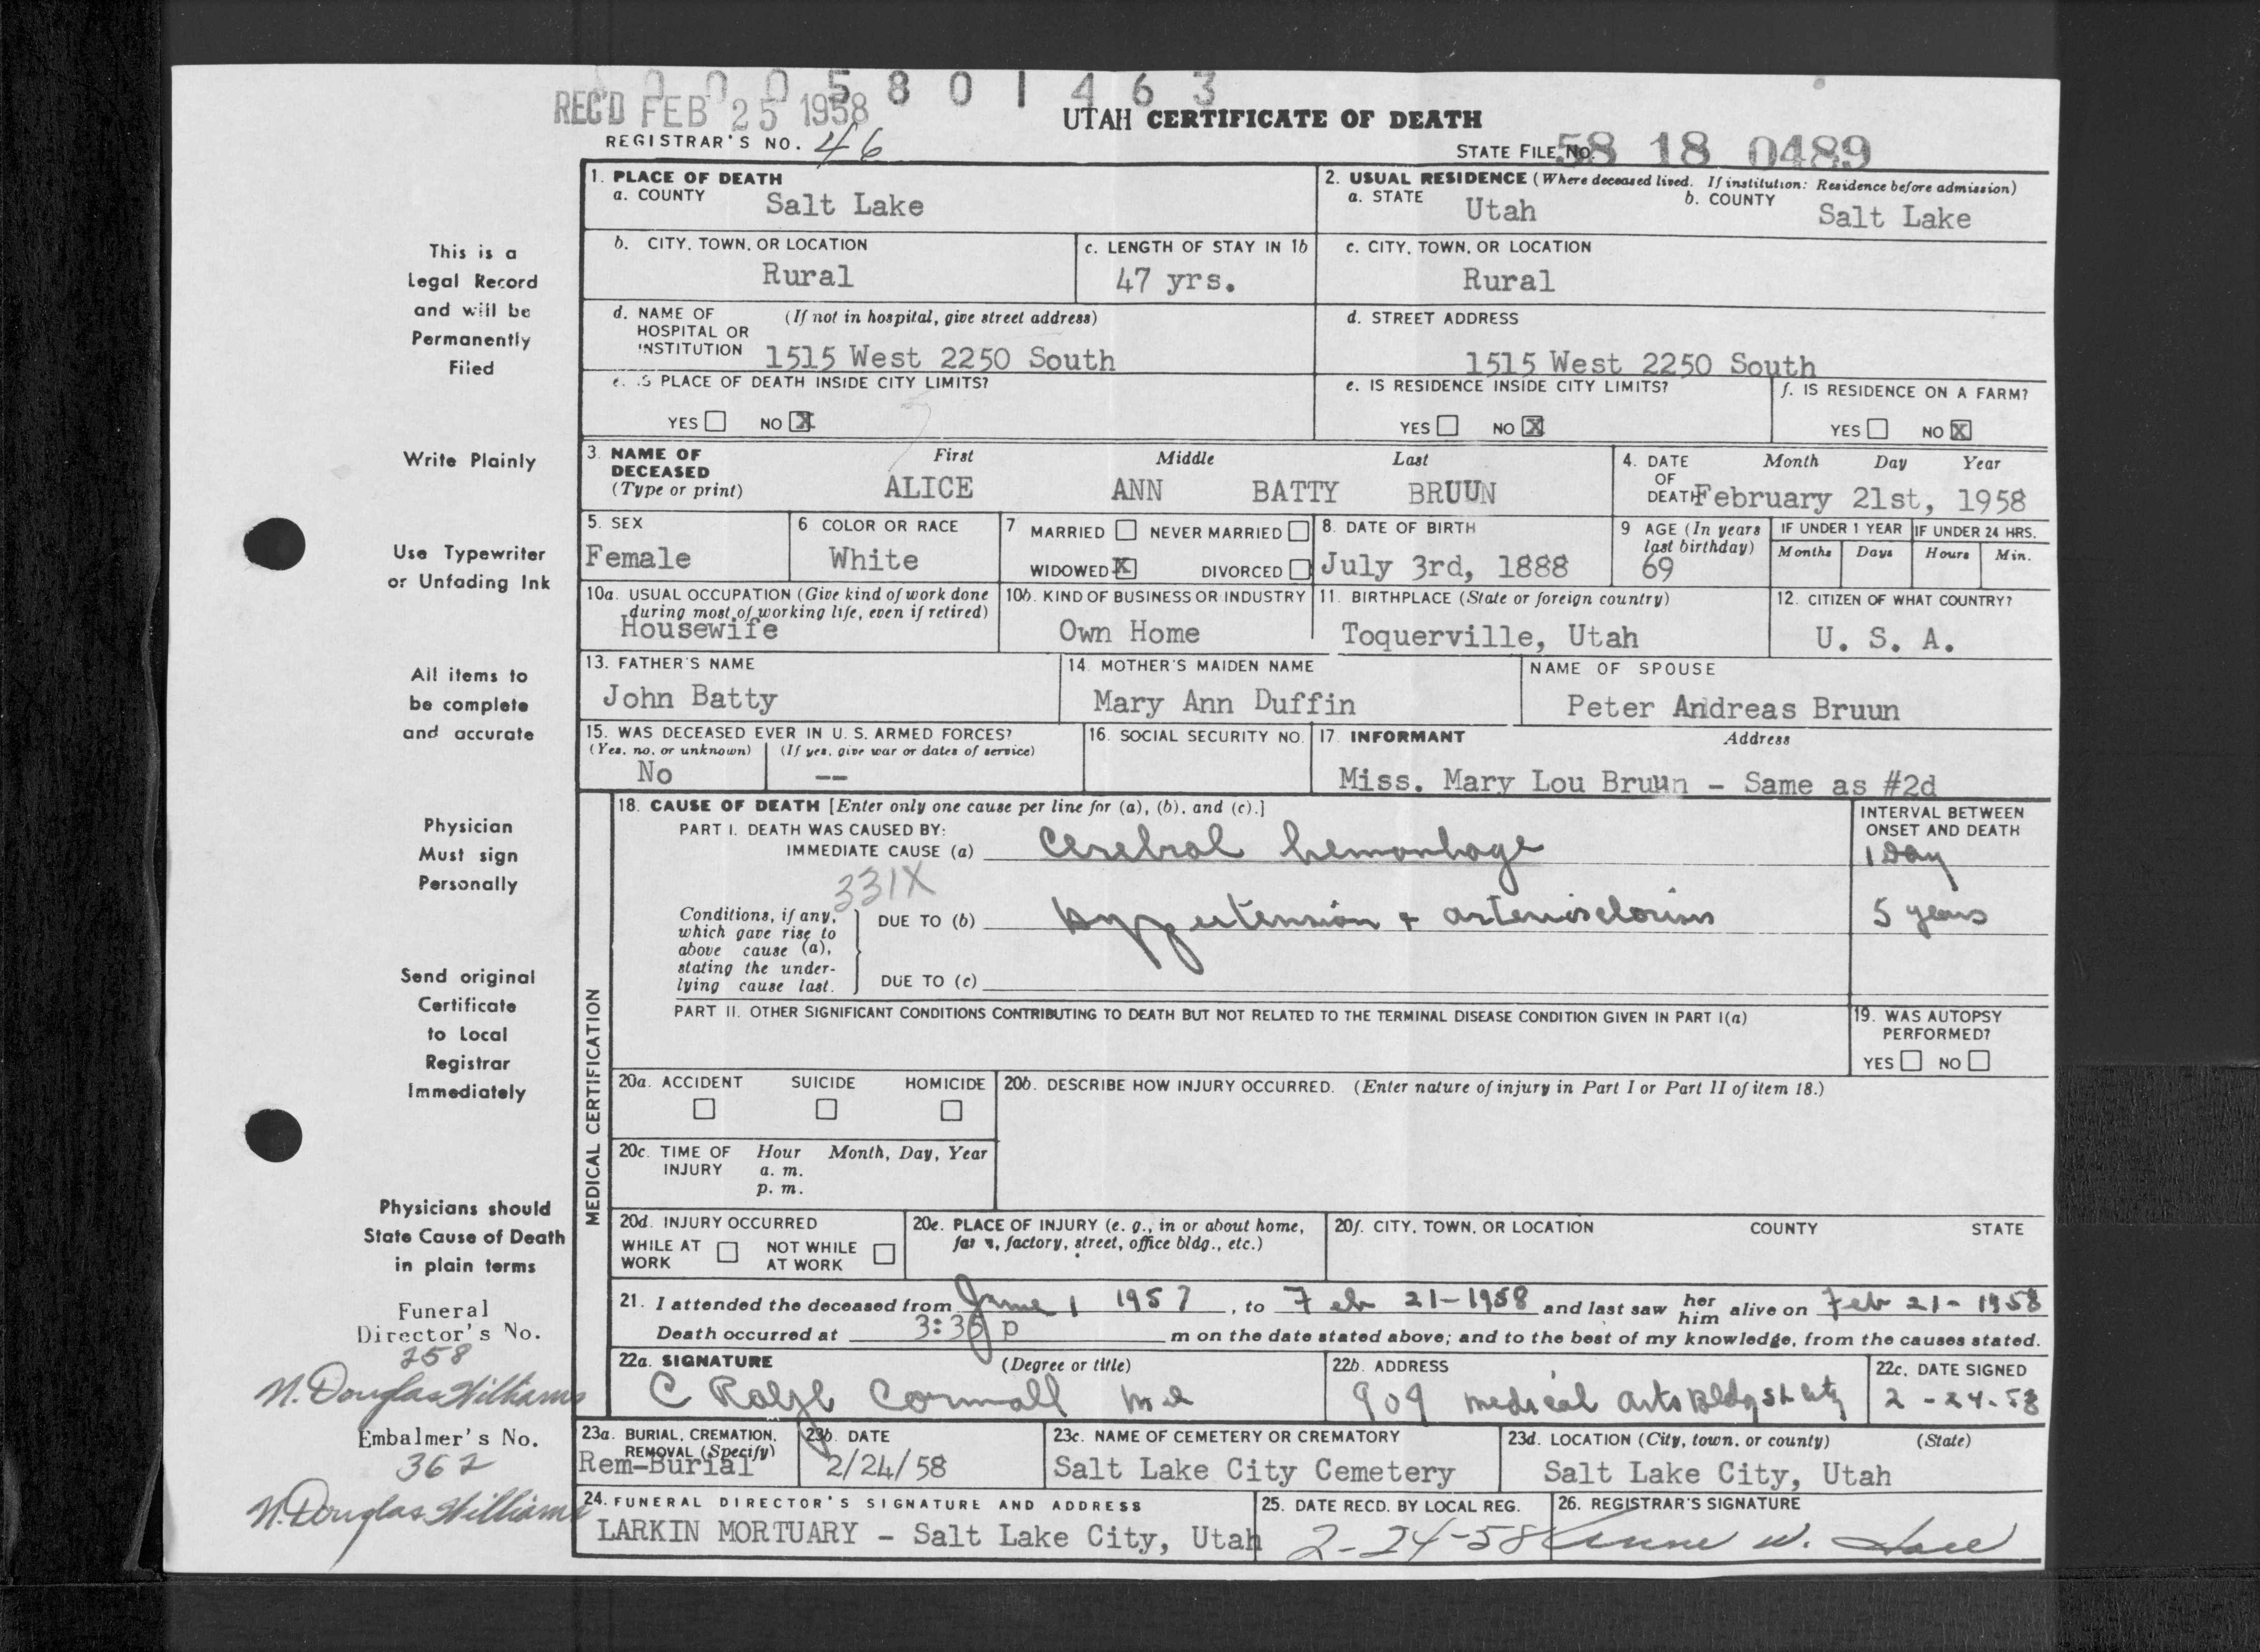 0 0 0 5 8 0 1 4 6 3
REC'D FEB 25 1958
UTAH CERTIFICATE OF DEATH
REGISTRAR'S NO. 46
STATE FILE No. 58 18 0489
1. PLACE OF DEATH
a. COUNTY Salt Lake
2. USUAL RESIDENCE (Where deceased lived. If institution: Residence before admission)
a. STATE Utah b. COUNTY Salt Lake
b. CITY, TOWN, OR LOCATION
Rural
c. LENGTH OF STAY IN 1b
47 yrs.
c. CITY, TOWN, OR LOCATION
Rural
d. NAME OF HOSPITAL OR INSTITUTION (If not in hospital, give street address)
1515 West 2250 South
d. STREET ADDRESS
1515 West 2250 South
e. IS PLACE OF DEATH INSIDE CITY LIMITS?
YES NO X
e. IS RESIDENCE INSIDE CITY LIMITS?
YES NO X
f. IS RESIDENCE ON A FARM?
YES NO X
3. NAME OF DECEASED (Type or print)
First Middle Last
ALICE ANN BATTY BRUUN
4. DATE OF DEATH Month Day Year
February 21st, 1958
5. SEX
Female
6 COLOR OR RACE
White
7 MARRIED NEVER MARRIED
WIDOWED X DIVORCED
8. DATE OF BIRTH
July 3rd, 1888
9 AGE (In years last birthday)
69
IF UNDER 1 YEAR
Months Days
IF UNDER 24 HRS.
Hours Min.
10a. USUAL OCCUPATION (Give kind of work done during most of working life, even if retired)
Housewife
10b. KIND OF BUSINESS OR INDUSTRY
Own Home
11. BIRTHPLACE (State or foreign country)
Toquerville, Utah
12. CITIZEN OF WHAT COUNTRY?
U. S. A.
13. FATHER'S NAME
John Batty
14. MOTHER'S MAIDEN NAME
Mary Ann Duffin
NAME OF SPOUSE
Peter Andreas Bruun
15. WAS DECEASED EVER IN U. S. ARMED FORCES?
(Yes, no, or unknown) (If yes, give war or dates of service)
No --
16. SOCIAL SECURITY NO.
17. INFORMANT Address
Miss. Mary Lou Bruun - Same as #2d
MEDICAL CERTIFICATION
18. CAUSE OF DEATH [Enter only one cause per line for (a), (b), and (c).]
INTERVAL BETWEEN ONSET AND DEATH
PART I. DEATH WAS CAUSED BY:
IMMEDIATE CAUSE (a) Cerebral hemorrhage 1 Day
331X
Conditions, if any, which gave rise to above cause (a), stating the underlying cause last.
DUE TO (b) hypertension + arteriosclorisis 5 years
DUE TO (c)
PART II. OTHER SIGNIFICANT CONDITIONS CONTRIBUTING TO DEATH BUT NOT RELATED TO THE TERMINAL DISEASE CONDITION GIVEN IN PART I(a)
19. WAS AUTOPSY PERFORMED?
YES NO
20a. ACCIDENT SUICIDE HOMICIDE
20b. DESCRIBE HOW INJURY OCCURRED. (Enter nature of injury in Part I or Part II of item 18.)
20c. TIME OF INJURY Hour Month, Day, Year
a. m.
p. m.
20d. INJURY OCCURRED
WHILE AT WORK NOT WHILE AT WORK
20e. PLACE OF INJURY (e. g., in or about home, farm, factory, street, office bldg., etc.)
20f. CITY, TOWN, OR LOCATION COUNTY STATE
21. I attended the deceased from June 1 1957, to Feb 21-1958 and last saw her him alive on Feb 21-1958
Death occurred at 3:35 p m on the date stated above; and to the best of my knowledge, from the causes stated.
22a. SIGNATURE (Degree or title)
C Ralph Cornwall md
22b. ADDRESS
909 medical arts Bldg SL City
22c. DATE SIGNED
2-24-58
23a. BURIAL, CREMATION, REMOVAL (Specify)
Rem-Burial
23b. DATE
2/24/58
23c. NAME OF CEMETERY OR CREMATORY
Salt Lake City Cemetery
23d. LOCATION (City, town, or county) (State)
Salt Lake City, Utah
24. FUNERAL DIRECTOR'S SIGNATURE AND ADDRESS
LARKIN MORTUARY - Salt Lake City, Utah
25. DATE RECD. BY LOCAL REG.
2-24-58
26. REGISTRAR'S SIGNATURE
Anne W.
This is a
Legal Record
and will be
Permanently
Filed
Write Plainly
Use Typewriter
or Unfading Ink
All items to
be complete
and accurate
Physician
Must sign
Personally
Send original
Certificate
to Local
Registrar
Immediately
Physicians should
State Cause of Death
in plain terms
Funeral
Director's No.
258
N. Douglas Williams
Embalmer's No.
362
N. Douglas Williams